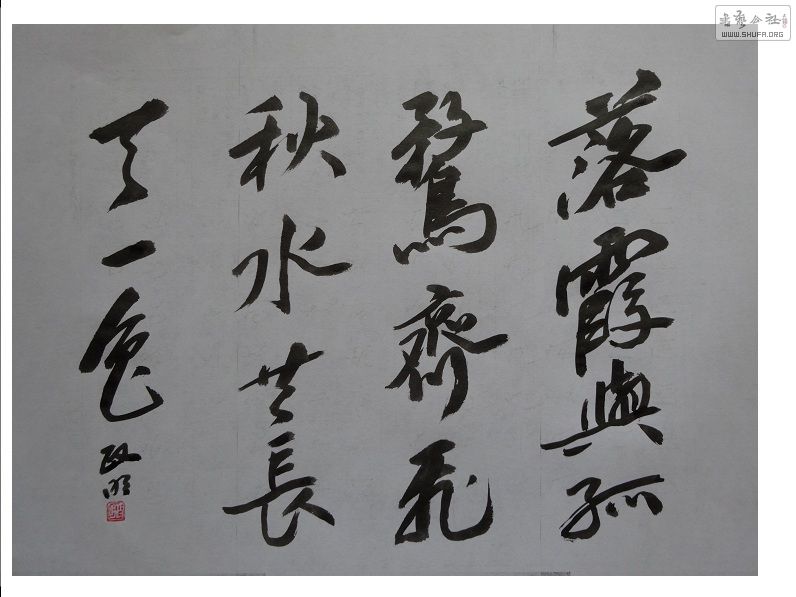 落霞與孤
鶩齊飛
秋水共長
天一色
政明
書藝公社
WWW.SHUFA.ORG